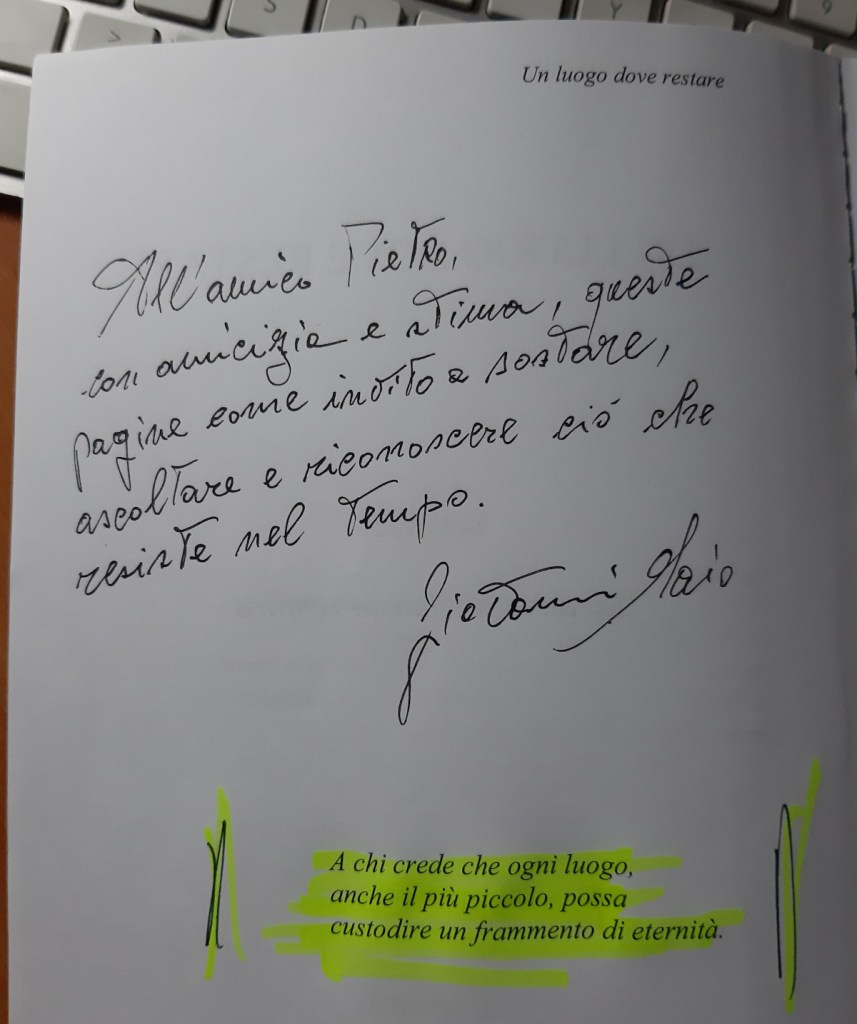 Un luogo dove restare
All'amico Pietro,
con amicizia e stima, queste
pagine come invito a sostare,
ascoltare e riconoscere ciò che
resiste nel tempo.
Giovanni Maio
A chi crede che ogni luogo,
anche il più piccolo, possa
custodire un frammento di eternità.